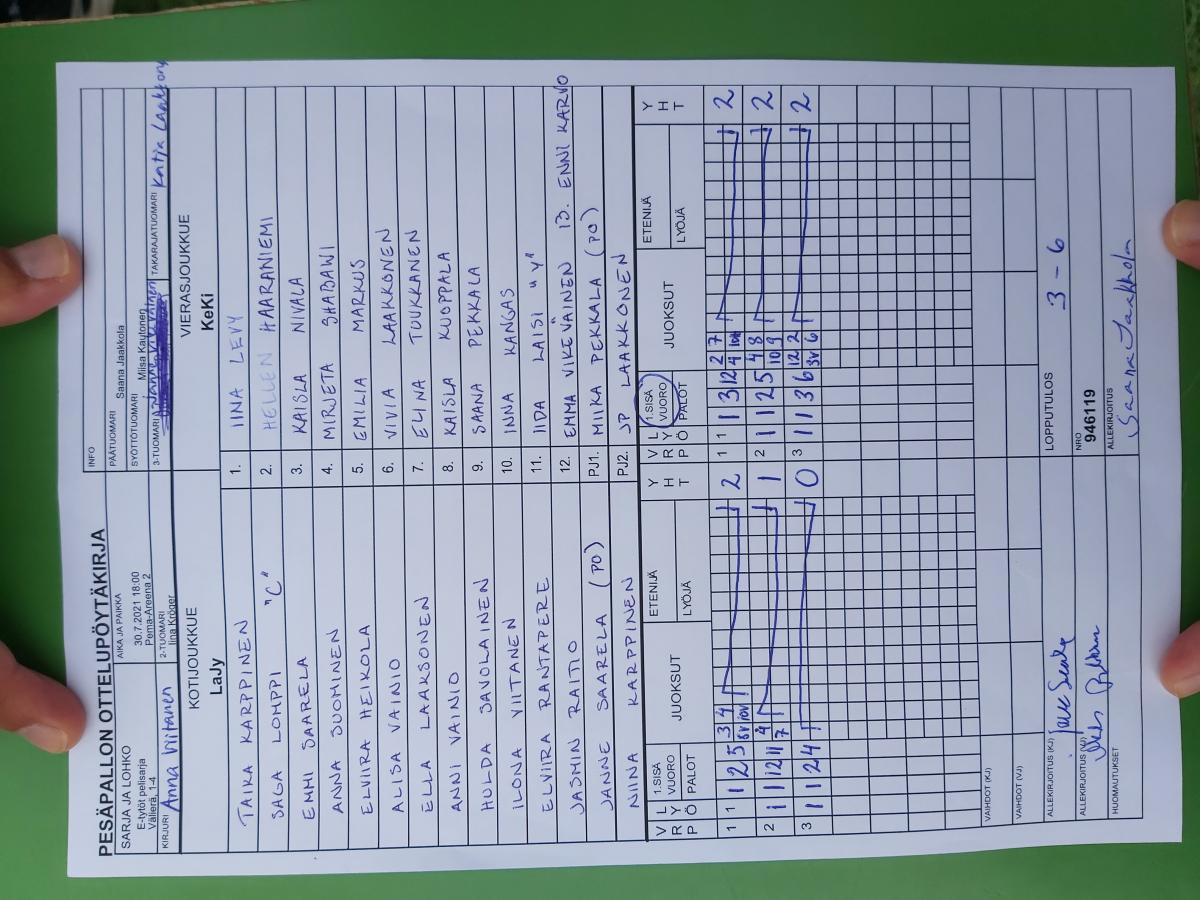 PESÄPALLON OTTELUPÖYTÄKIRJA
SARJA JA LOHKO
E-tytöt pelisarja
Välierä, 1-4
AIKA JA PAIKKA
30.7.2021 18:00
Pema-Areena 2
INFO
PÄÄTUOMARI
Saana Jaakkola
SYÖTTÖTUOMARI
Miisa Kautonen
KIRJURI Anna Viitanen
2-TUOMARI
Iina Kröger
3-TUOMARI
TAKARAJATUOMARI Katja Laaksonen
KOTIJOUKKUE
LaJy
VIERASJOUKKUE
KeKi
TAIKA KARPPINEN 1. IINA LEVY
SAGA LOMPPI "C" 2. HELLEN HAARANIEMI
EMMI SAARELA 3. KAISLA NIVALA
ANNA SUOMINEN 4. MIRJETA SHABAWI
ELVIIRA HEIKOLA 5. EMILIA MARKUS
ALISA VAINIO 6. VIVIA LAAKKONEN
ELLA LAAKSONEN 7. ELINA TOUKKANEN
ANNI VAINIO 8. KAISLA KUOPPALA
HULDA SAVOLAINEN 9. SAANA PEKKALA
ILONA VIITANEN 10. INNA KANGAS
ELVIIRA RANTAPERE 11. IIDA LAISI "Y"
JASMIN RAITIO 12. EMMA VIKEVÄINEN 13. ENNI KARVO
JANNE SAARELA (PO) PJ1. MIIKA PEKKALA (PO)
NIINA KARPPINEN PJ2. JP LAAKKONEN
V R P L Y Ö 1.SISÄ VUORO PALOT JUOKSUT ETENIJÄ LYÖJÄ Y H T V R P L Y Ö 1.SISÄ VUORO PALOT JUOKSUT ETENIJÄ LYÖJÄ Y H T
1 1 1 2 5 3 4 6V 10V 2 1 1 1 3 12 2 7 4 10V 2
2 1 1 12 11 4 7 1 2 1 1 2 5 4 8 10 9 2
3 1 1 2 4 0 3 1 1 3 6 12 2 3V 6 2
VAIHDOT (KJ)
VAIHDOT (VJ)
ALLEKIRJOITUS (KJ)
LOPPUTULOS 3 - 6
ALLEKIRJOITUS (VJ)
NRO
946119
HUOMAUTUKSET
ALLEKIRJOITUS
Saana Jaakkola